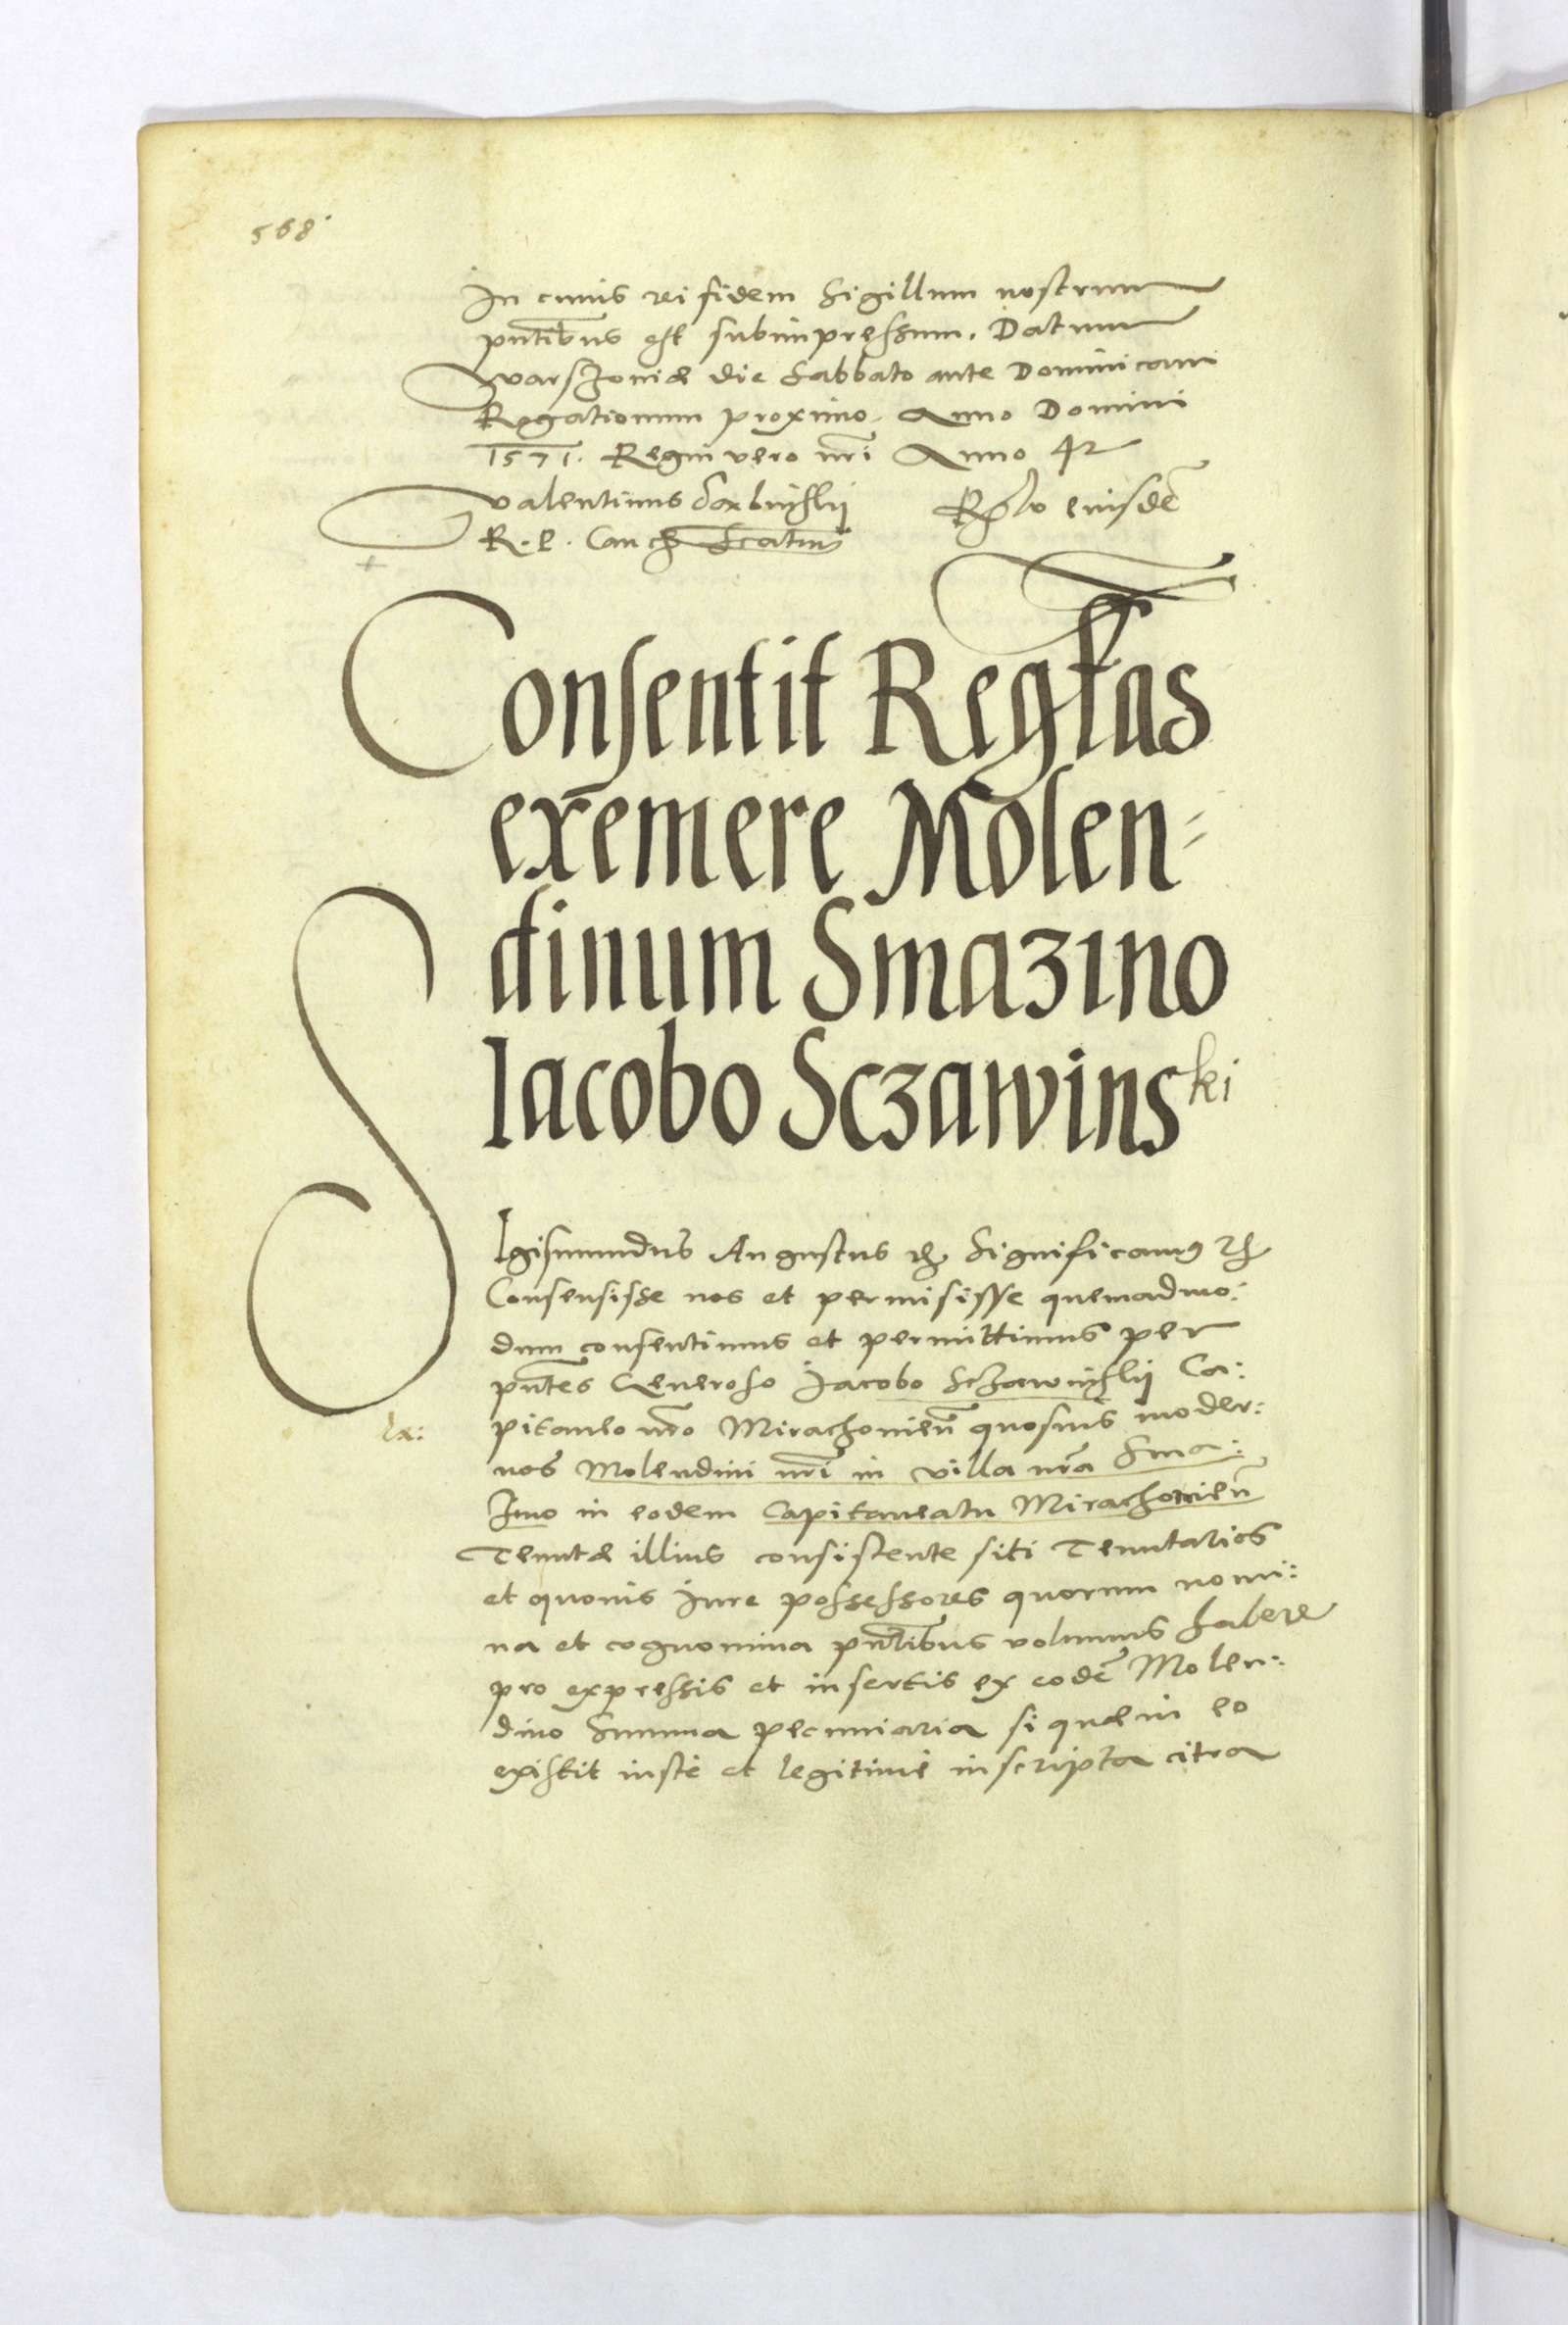 568
In cuius rei fidem Sigillum nostrum
pñtibus est subimpressum. Datum
Varszoviæ die Sabbato ante Dominicam
Rogationum proximo. Anno Domini
1571. Regni vero nrĩ Anno 42
Valentinus Dąbrskÿ
R. P. Canc̃
Rel̃o eiusdẽ
Consentit Reg̃tas
exemere Molen=
dinum Smazino
Iacobo Sczawinski
SIgismundus Augustus etc. Significamus etc.
Consensisse nos et permisisse quemadmo:
dum consentimus et permittimus per
pñtes Generoso Jacobo Sczawinskÿ Ca:
lx:
pitaneo nrõ Mirachovieñ quosuis moder:
nos Molendini nrĩ in villa nrã Sma:
zino in eodem Capitaneatu Mirachovieñ
Tenutæ illius consistente siti Tenutarios
et quouis iure possessores quorum nomi:
na et cognomina pñtibus volumus habere
pro expressis et insertis ex eodẽ Molen:
dino Summa pecuniaria si quæ in eo
existit iuste et legitime inscripta citra